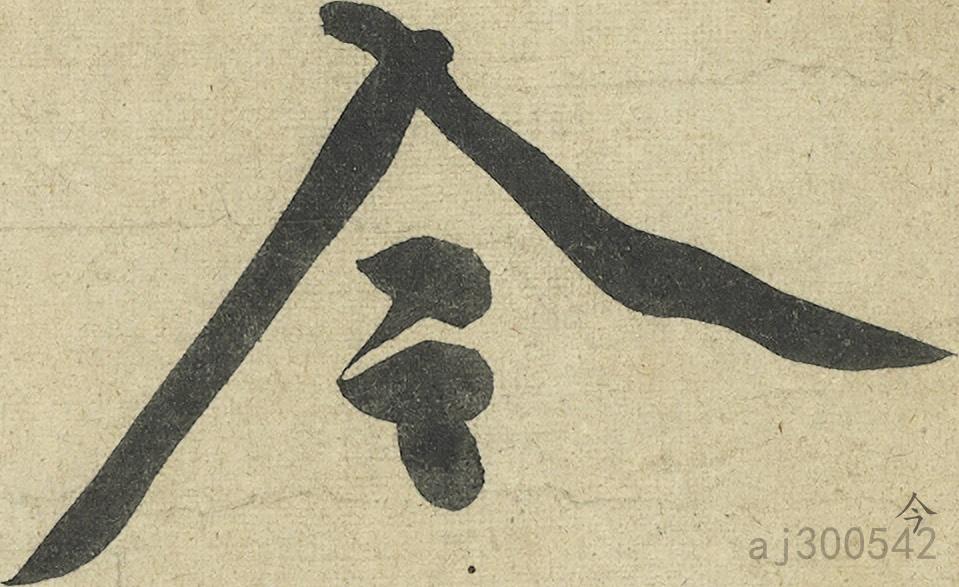 今
今
aj300542